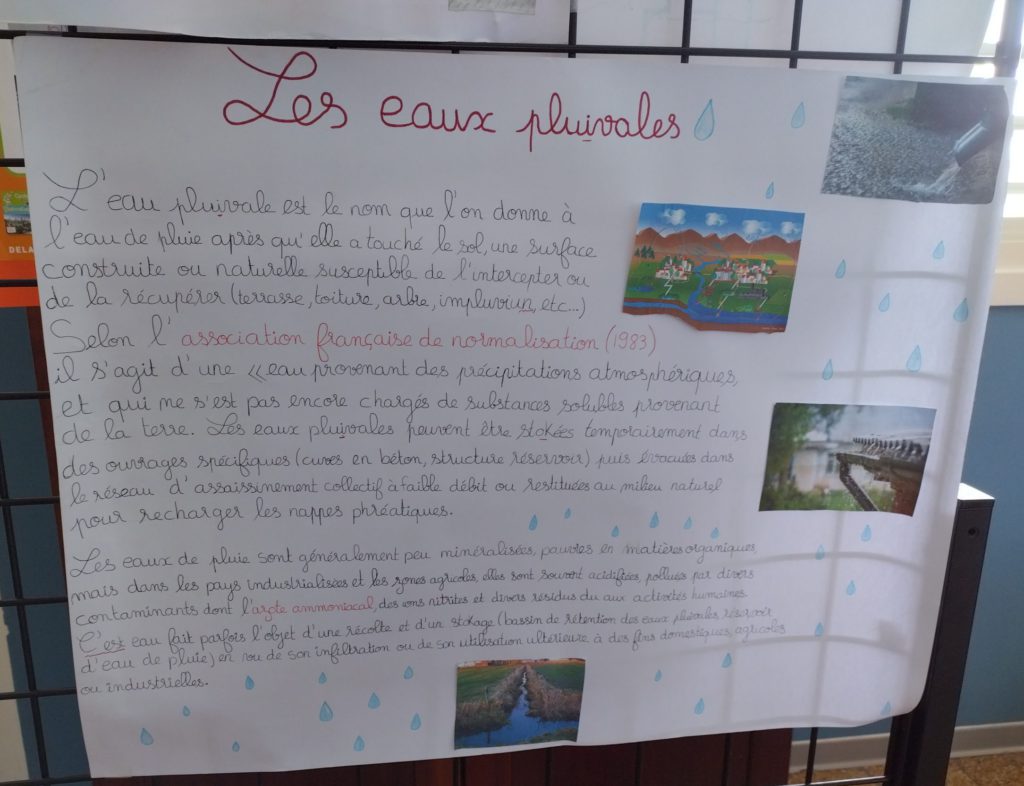 Les eaux pluivales
L'eau pluivale est le nom que l'on donne à
l'eau de pluie après qu'elle a touché le sol, une surface
construite ou naturelle susceptible de l'intercepter ou
de la récupérer (terrasse, toiture, arbre, impluviun, etc...)
Selon l'association française de normalisation (1983)
il s'agit d'une «eau provenant des précipitations atmosphériques,
et qui me s'est pas encore chargés de substances solubles provenant
de la terre. Les eaux pluivales peuvent être stokées temporairement dans
des ouvrages spécifiques (cuves en béton, structure réservoir) puis évacuées dans
le réseau d'assaissinement collectif à faible débit ou restituées au milieu naturel
pour recharger les nappes phréatiques.
Les eaux de pluie sont généralement peu minéralisées, pauvres en matières organiques,
mais dans les pays industrialisées et les zones agricoles, elles sont souvent acidifiées, polluées par divers
contaminants dont l'azote ammoniacal, des ions nitrites et divers résidus du aux activités humaines.
C'est eau fait parfois l'objet d'une récolte et d'un stokage (bassin de rétention des eaux pluivales, réservoir
d'eau de pluie) en vu de son infiltration ou de son utilisation ultérieure à des fins domestiques, agricoles
ou industrielles.
DELA